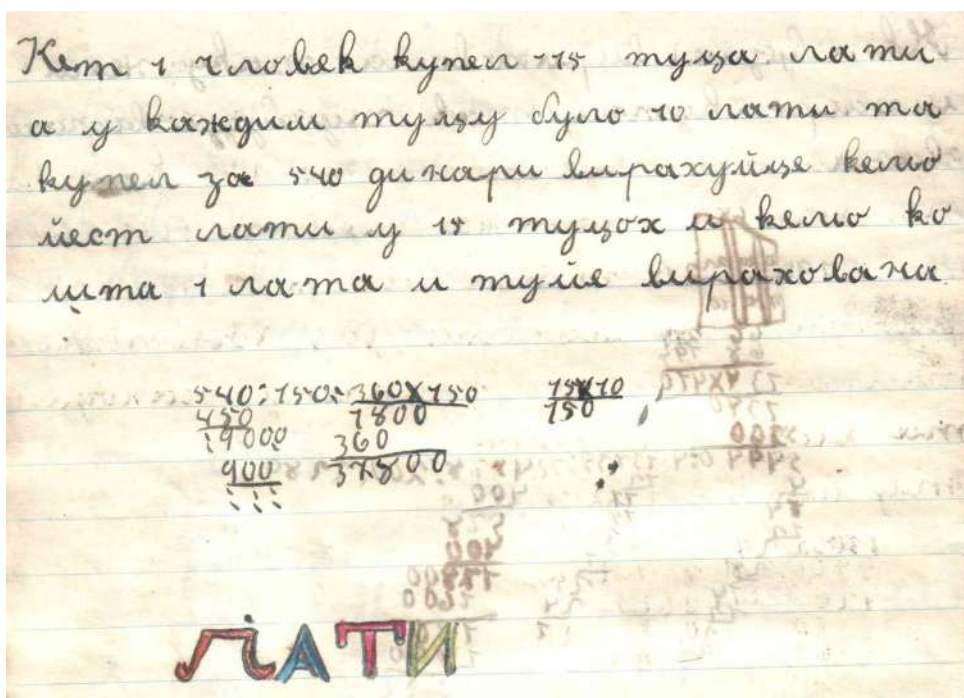 Кет 1 чловек купел 115 туца лати
а у каждим тулцу було 10 лати та
купел за 540 динари вирахуйце кельо
йест лати у 15 туцох и кельо ко
шта 1 лата и туйе вирахована
540:150=360X150 15X10
450 1800 150
9000 360
900 37800
ЛАТИ